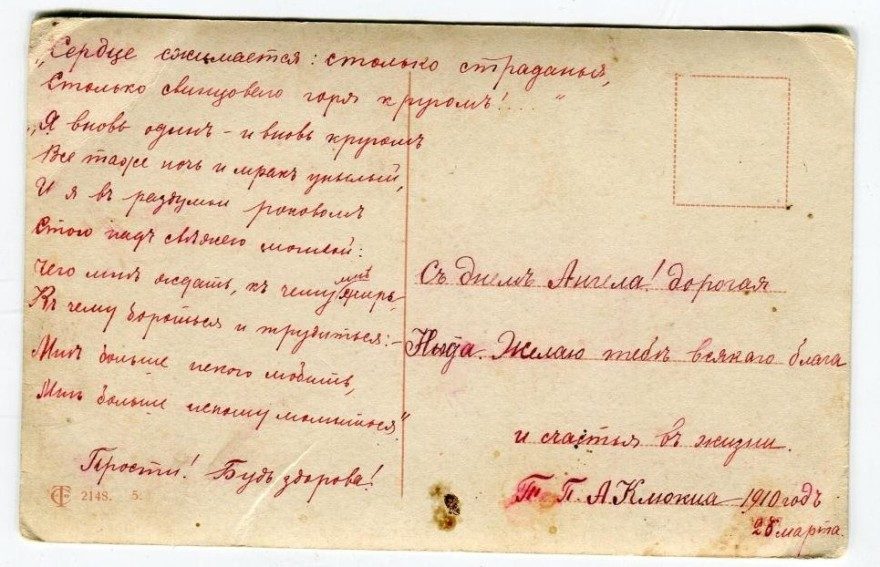 „Сердце сжимается: столько страданья,
Столько свинцового горя кругомъ!... “
„Я вновь одинъ – и вновь кругомъ
Все таже ночь и мракъ унылый,
И я въ раздумьи роковомъ
Стою надъ свѣжею могилой:
Чего мнѣ ждать, къ чему мнѣ жить,
Къ чему бороться и трудиться:–
Мнѣ больше некого любить,
Мнѣ больше некому молиться“
Прости! Будь здорова!
2148. 5.
Съ днемъ Ангела! дорогая
Желаю тебѣ всякаго блага
и счастья въ жизни.
П. А. Клюкина 1910 годъ
28 марта.